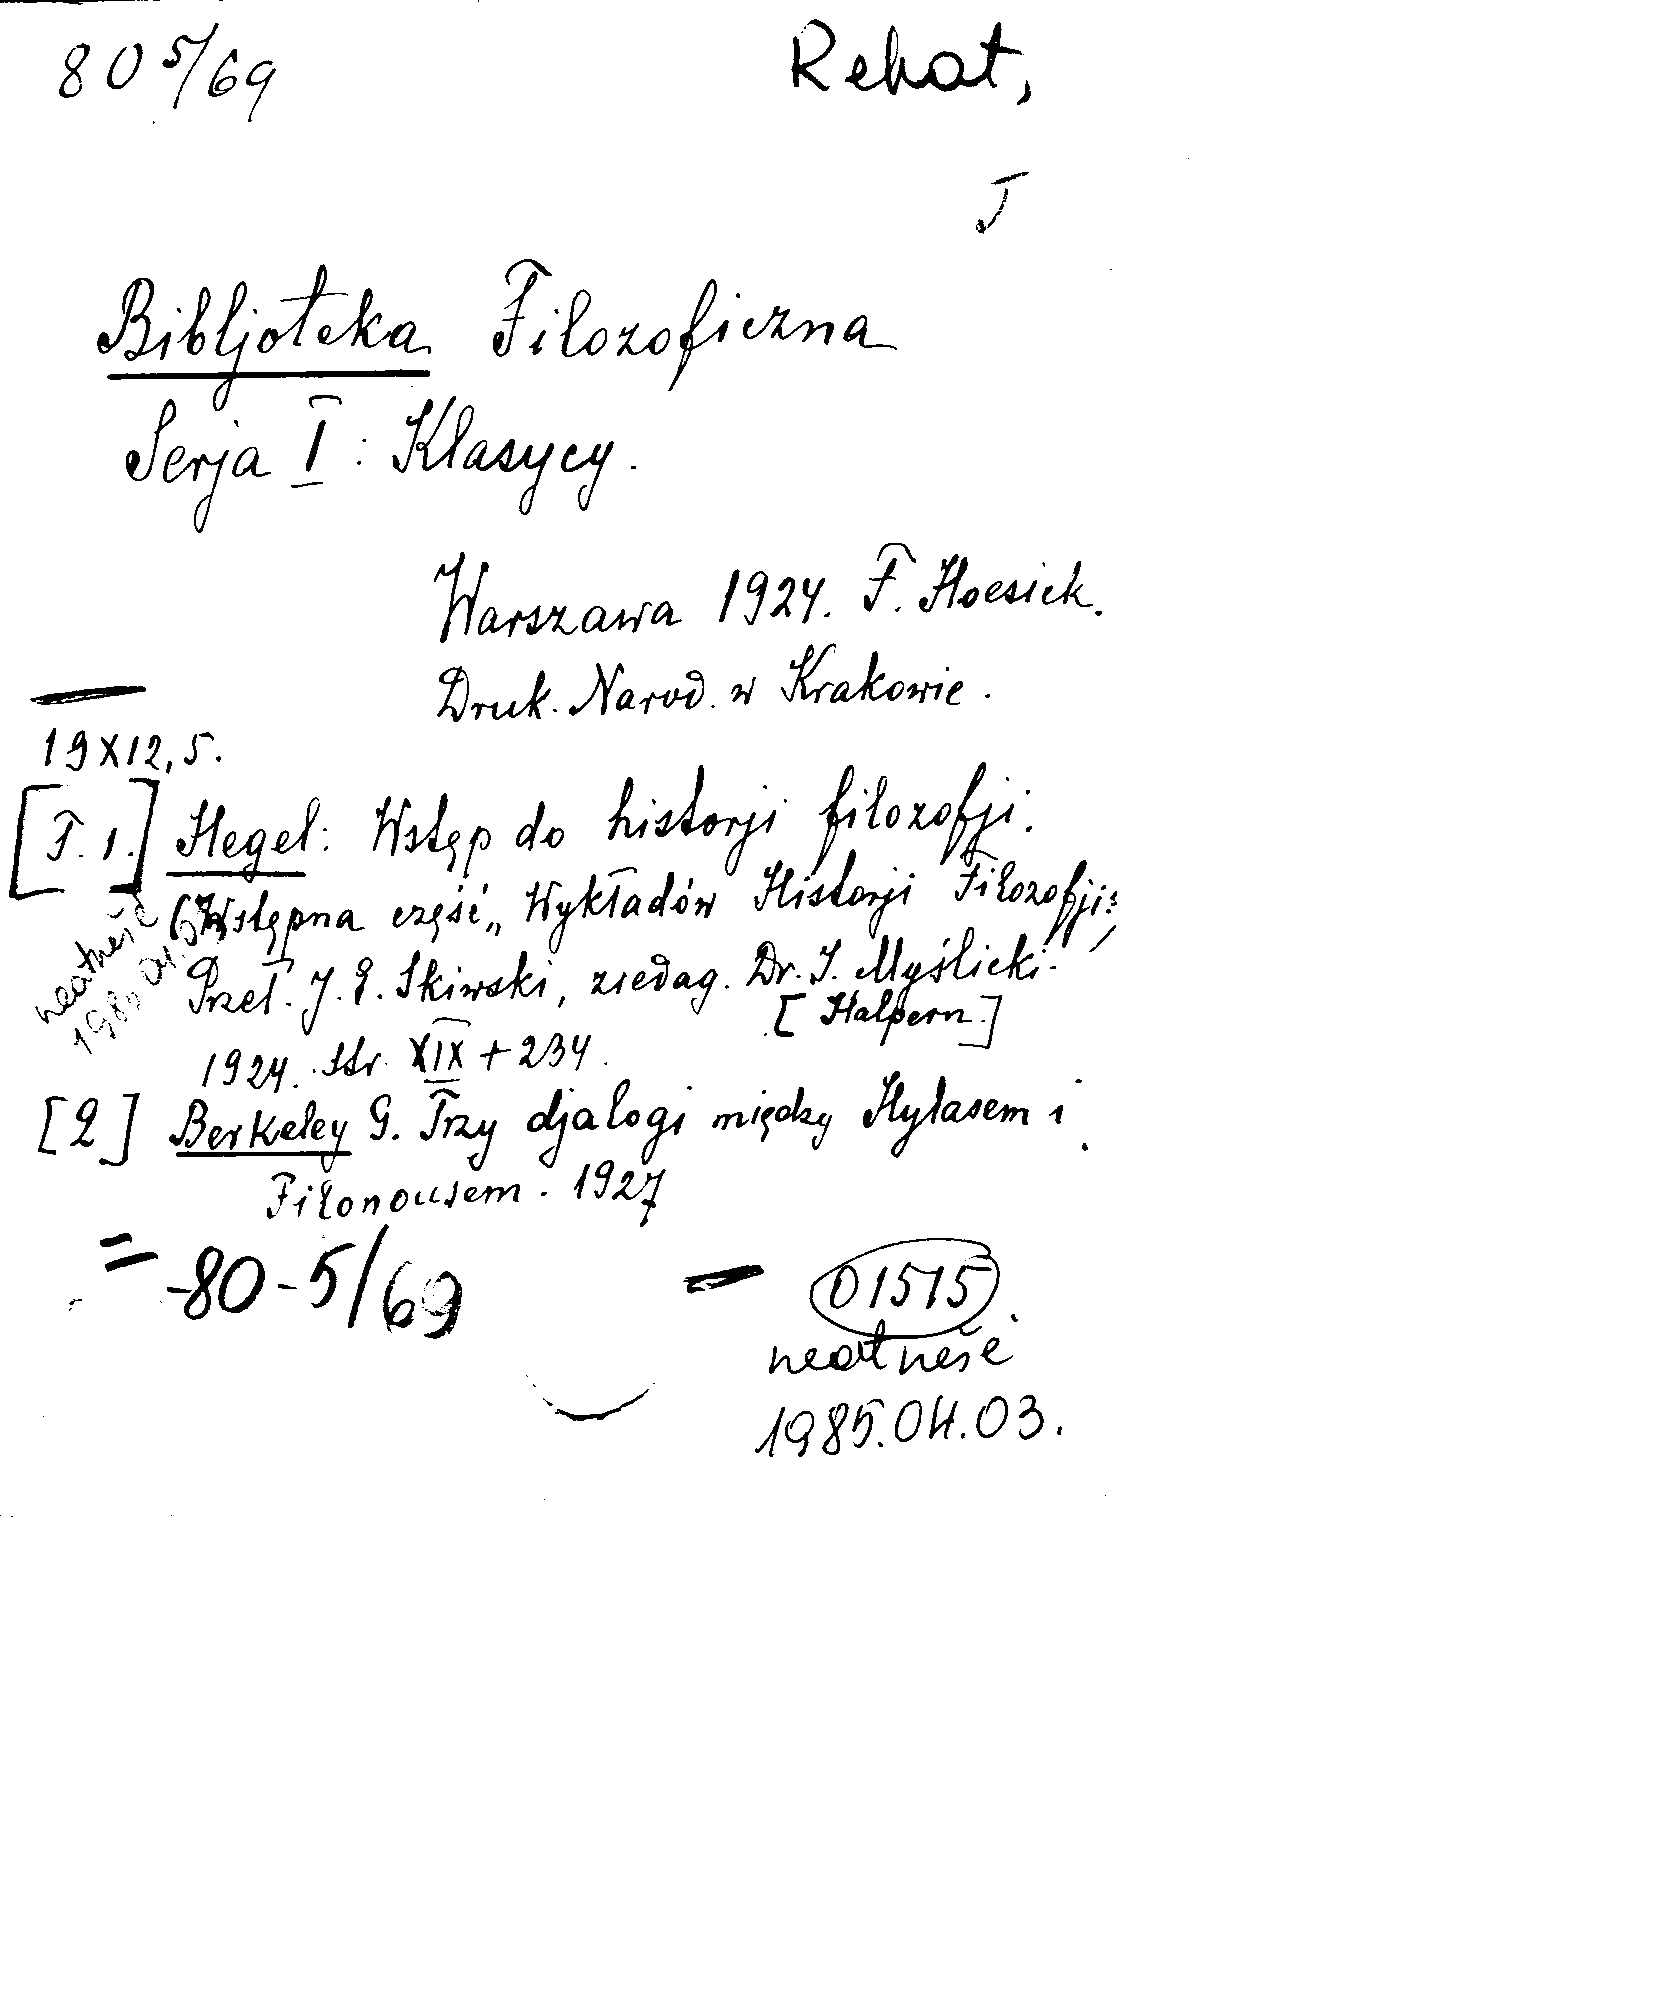 80 5/69
Rekat,
J
Bibljoteka Filozoficzna
Serja I : Klasycy.
Warszawa 1924. F. Hoesick.
Druk. Narod. w Krakowie.
19X12,5.
[T. 1.] Hegel: Wstęp do historji filozofji.
(Wstępna część „Wykładów Historji Filozofji"
Przeł. J. E. Skiwski, zredag. Dr. I. Myślicki.
[Halpern.]
neatnešė
1924. str. XIX + 234.
[2] Berkeley G. Trzy djalogi między Hylasem i
Filonousem. 1927
= -80-5/69 – 01515
neatnešė
1985.04.03.